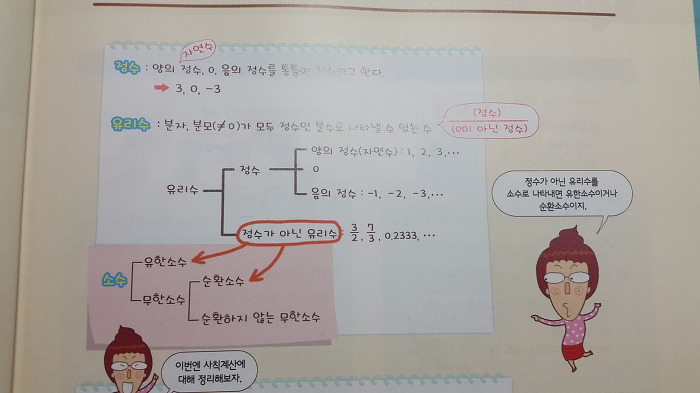 자연수
정수 : 양의 정수, 0, 음의 정수를 통틀어 정수라고 한다
➡ 3, 0, -3
유리수 : 분자, 분모(≠0)가 모두 정수인 분수로 나타낼 수 있는 수
(정수)
(0이 아닌 정수)
유리수
정수
양의 정수(자연수) : 1, 2, 3, ···
0
음의 정수 : -1, -2, -3, ···
정수가 아닌 유리수 : 3/2, 7/3, 0.2333, ···
정수가 아닌 유리수를
소수로 나타내면 유한소수이거나
순환소수이지.
소수
유한소수
무한소수
순환소수
순환하지 않는 무한소수
이번엔 사칙계산에
대해 정리해보자.